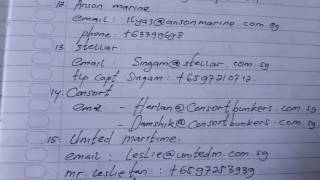 12. Anson marine
email : ilyas@ansonmarine.com.sg
phone : +63399698
13. Stellar.
email : Singam@stellar.com.sg
tlp Capt Singam : +6597210712.
14. Consort
em - Herlan@Consortbunkers.com.sg
- Damshik@Consortbunkers.com.sg
15. United maritime.
email : Leslie@unitedm.com.sg
mr. Leslie tan : +6597253939